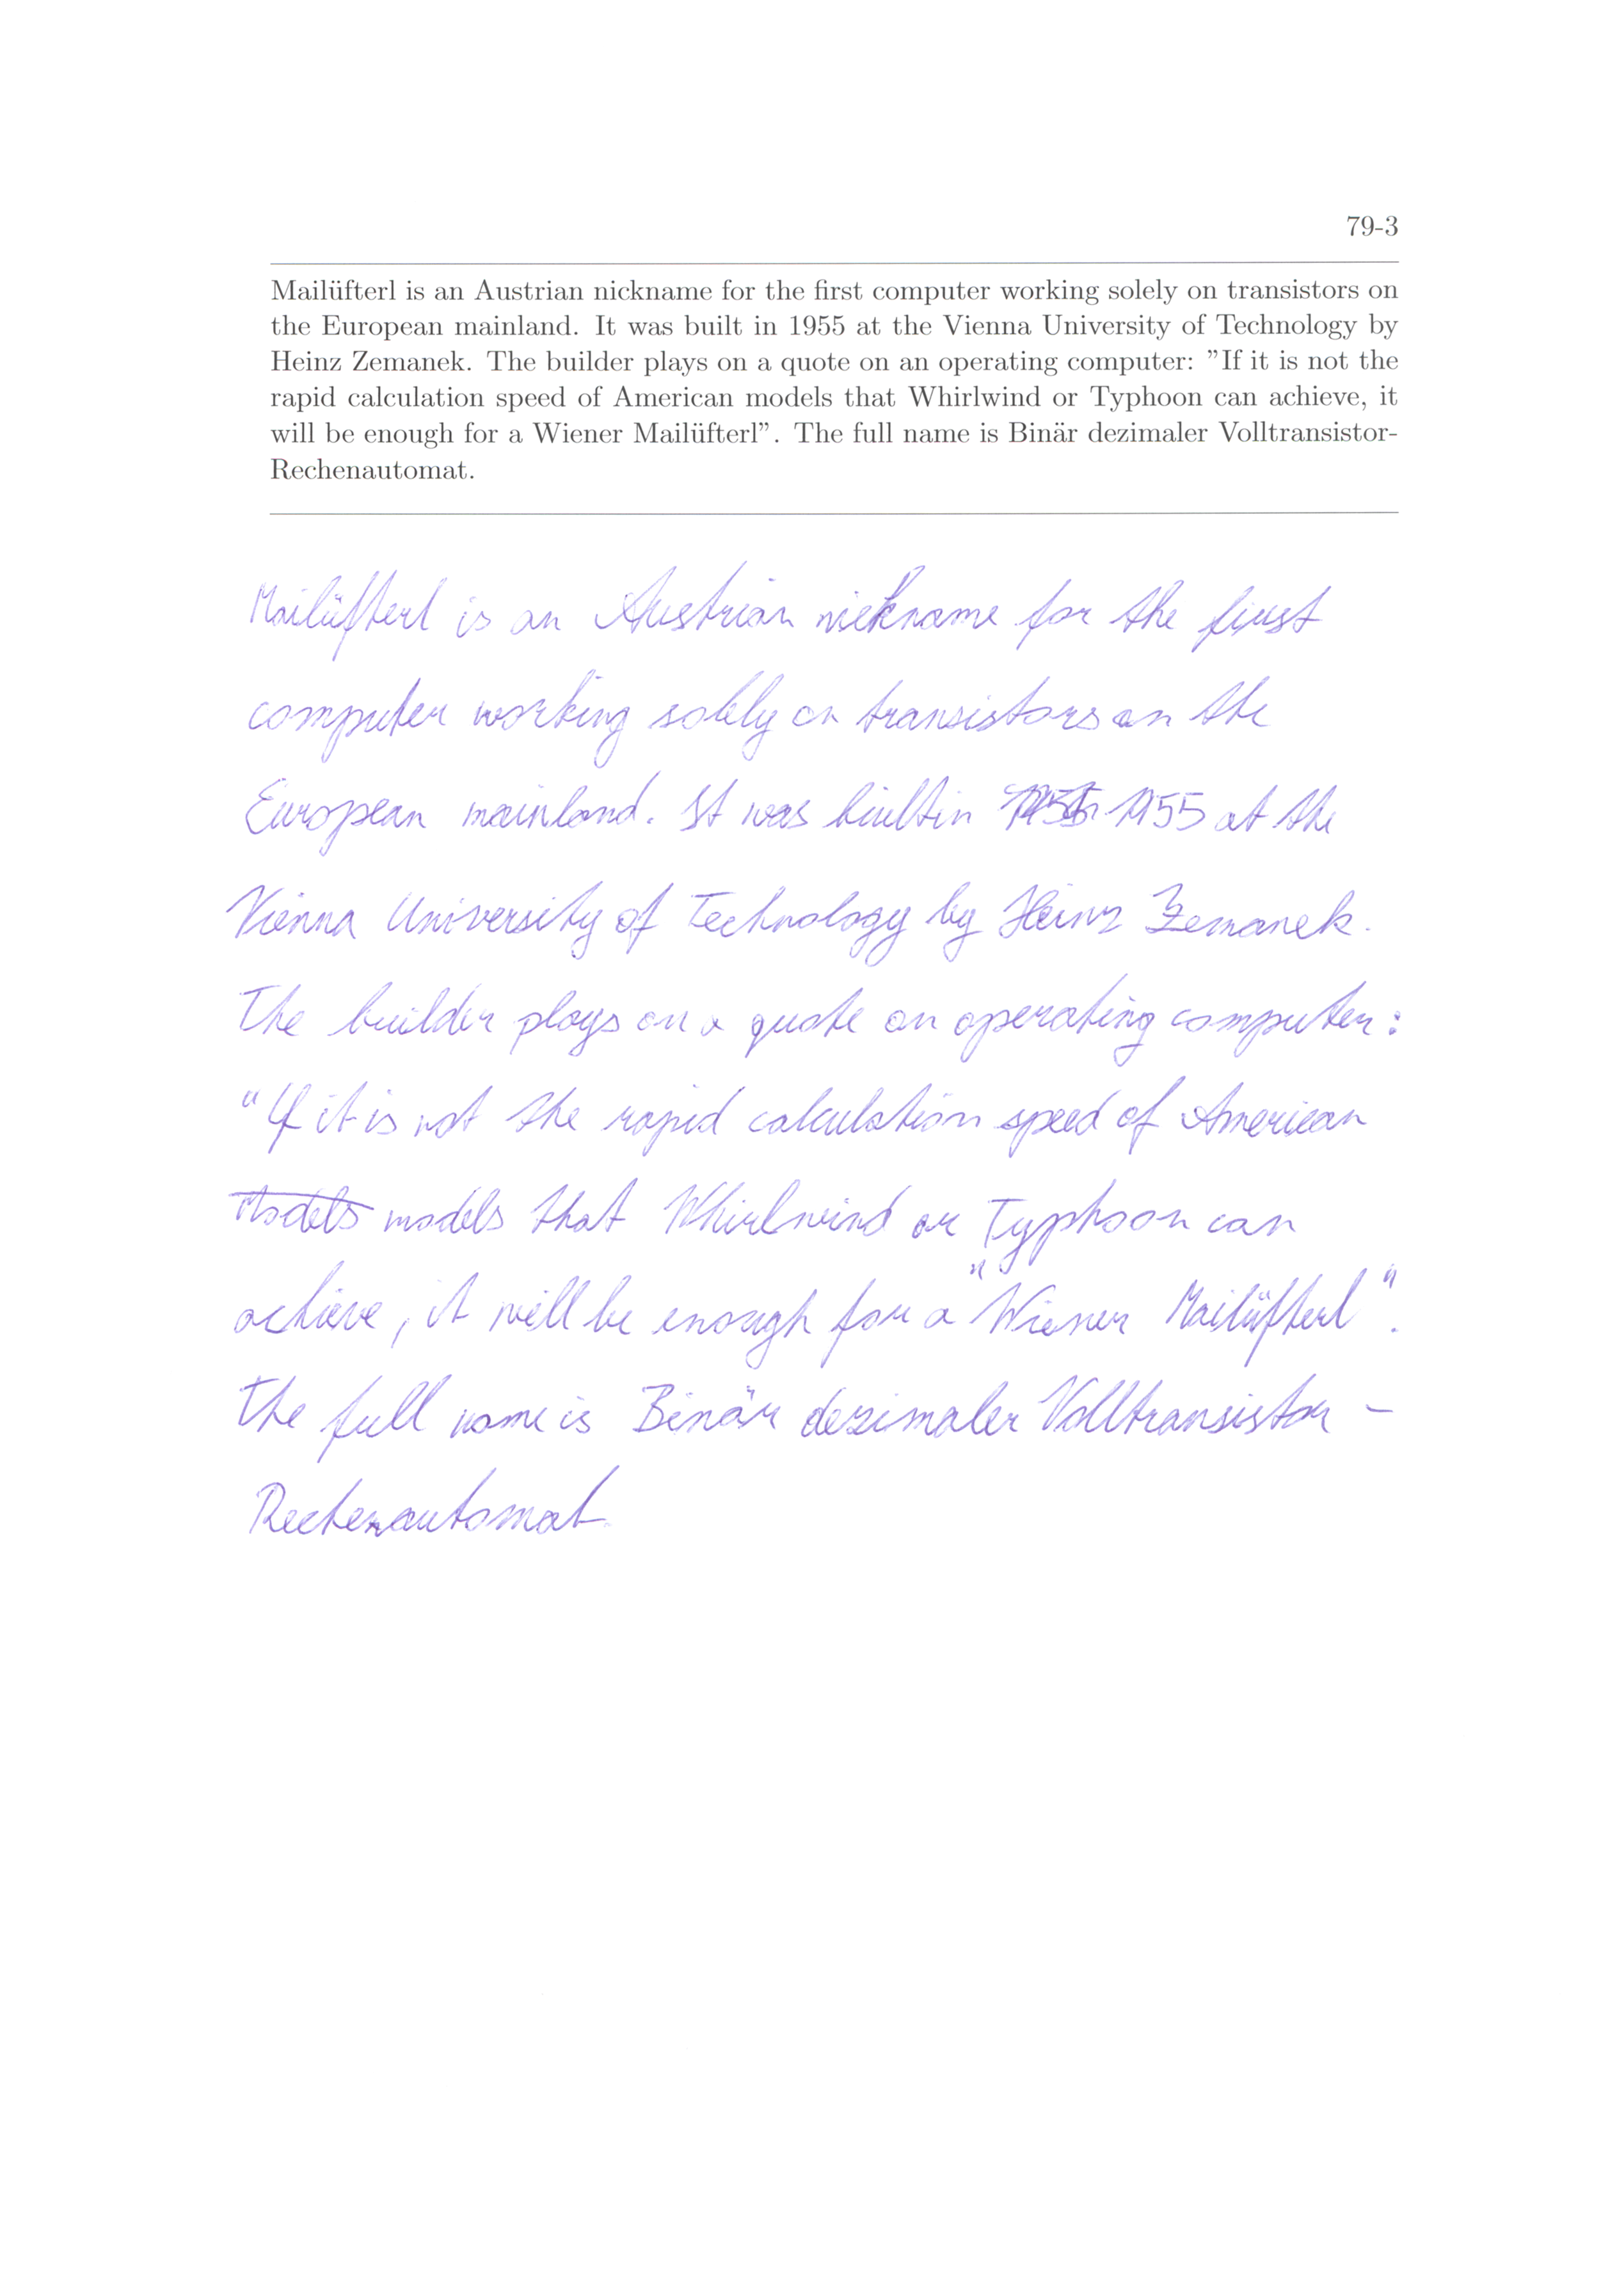 79-3
Mailüfterl is an Austrian nickname for the first computer working solely on transistors on
the European mainland. It was built in 1955 at the Vienna University of Technology by
Heinz Zemanek. The builder plays on a quote on an operating computer: ”If it is not the
rapid calculation speed of American models that Whirlwind or Typhoon can achieve, it
will be enough for a Wiener Mailüfterl”. The full name is Binär dezimaler Volltransistor-
Rechenautomat.
Mailüfterl is an Austrian nickname for the first
computer working solely on transistors on the
European mainland. It was built in 1955 at the
Vienna University of Technology by Heinz Zemanek.
The builder plays on a quote on operating computer:
"If it is not the rapid calculation speed of American
Models models that Whirlwind or Typhoon can
achieve, it will be enough for a "Wiener Mailüfterl".
The full name is Binär dezimaler Volltransistor-
Rechenautomat.